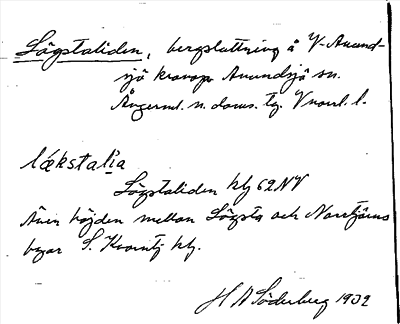 Lägstaliden, bergsluttning å V-Anund-
sjö kronopr Anundsjö sn.
Ångerml. n. doms. tg. Vnorrl. l.
lækstalia
Lägstaliden kbl 62NV
Även höjden mellan Lägsta och Norrtjärns
byar S. Kvarntj kbl.
H A Söderberg 1932